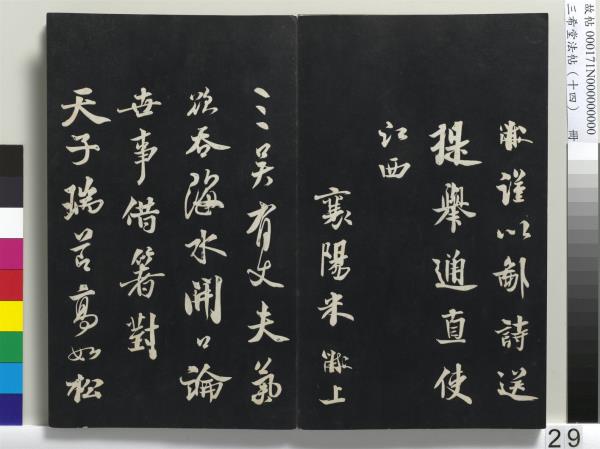 故帖 000171N000000000
三希堂法帖（十四）
黻謹以鄙詩送
提舉通直使
江西
襄陽米黻上
三吳有丈夫氣
欲吞海水開口論
世事借箸對
天子瑞高如松
29